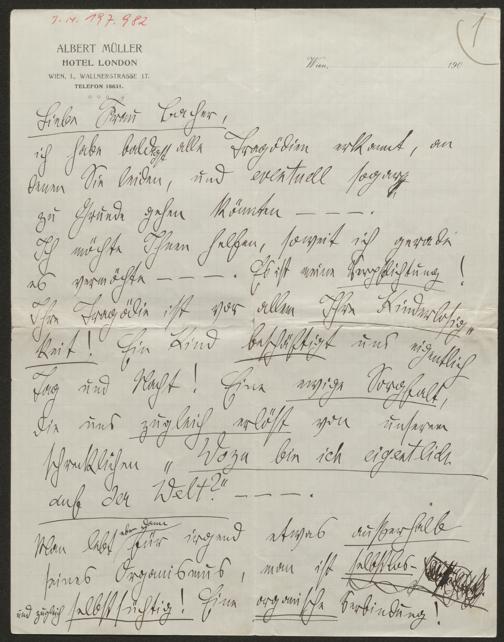 I.N. 197.982
1
ALBERT MÜLLER
HOTEL LONDON
WIEN, I., WALLNERSTRASSE 17.
TELEFON 18631.
Wien, 190
Liebe Frau Lacher,
ich habe baldigst alle Tragödien erkannt, an
denen Sie leiden, und eventuell sogar
zu Grunde gehen könnten — — — .
Ich möchte Ihnen helfen, soweit ich gerade
es vermöchte — — — . Es ist meine Verpflichtung!
Ihre Tragödie ist vor allem Ihre Kinderlosig-
keit! Ein Kind beschäftigt uns eigentlich
Tag und Nacht! Eine ewige Sorgfalt,
die uns zugleich erlöst von unserem
schrecklichen „Wozu bin ich eigentlich
auf der Welt?" — — — .
Man lebt eben dann für irgend etwas außerhalb
seines Organismus, man ist selbstlos-
und zugleich selbstsüchtig! Eine organische Verbindung!